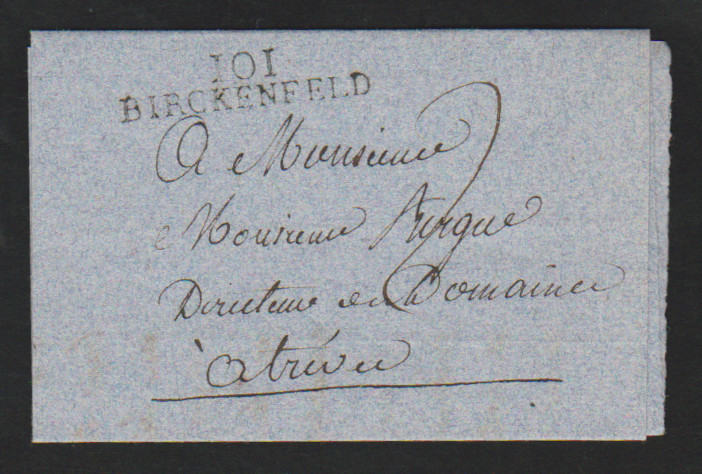 101
BIRCKENFELD
A Monsieur
Monsieur
Directeur des Domaines
à trèves